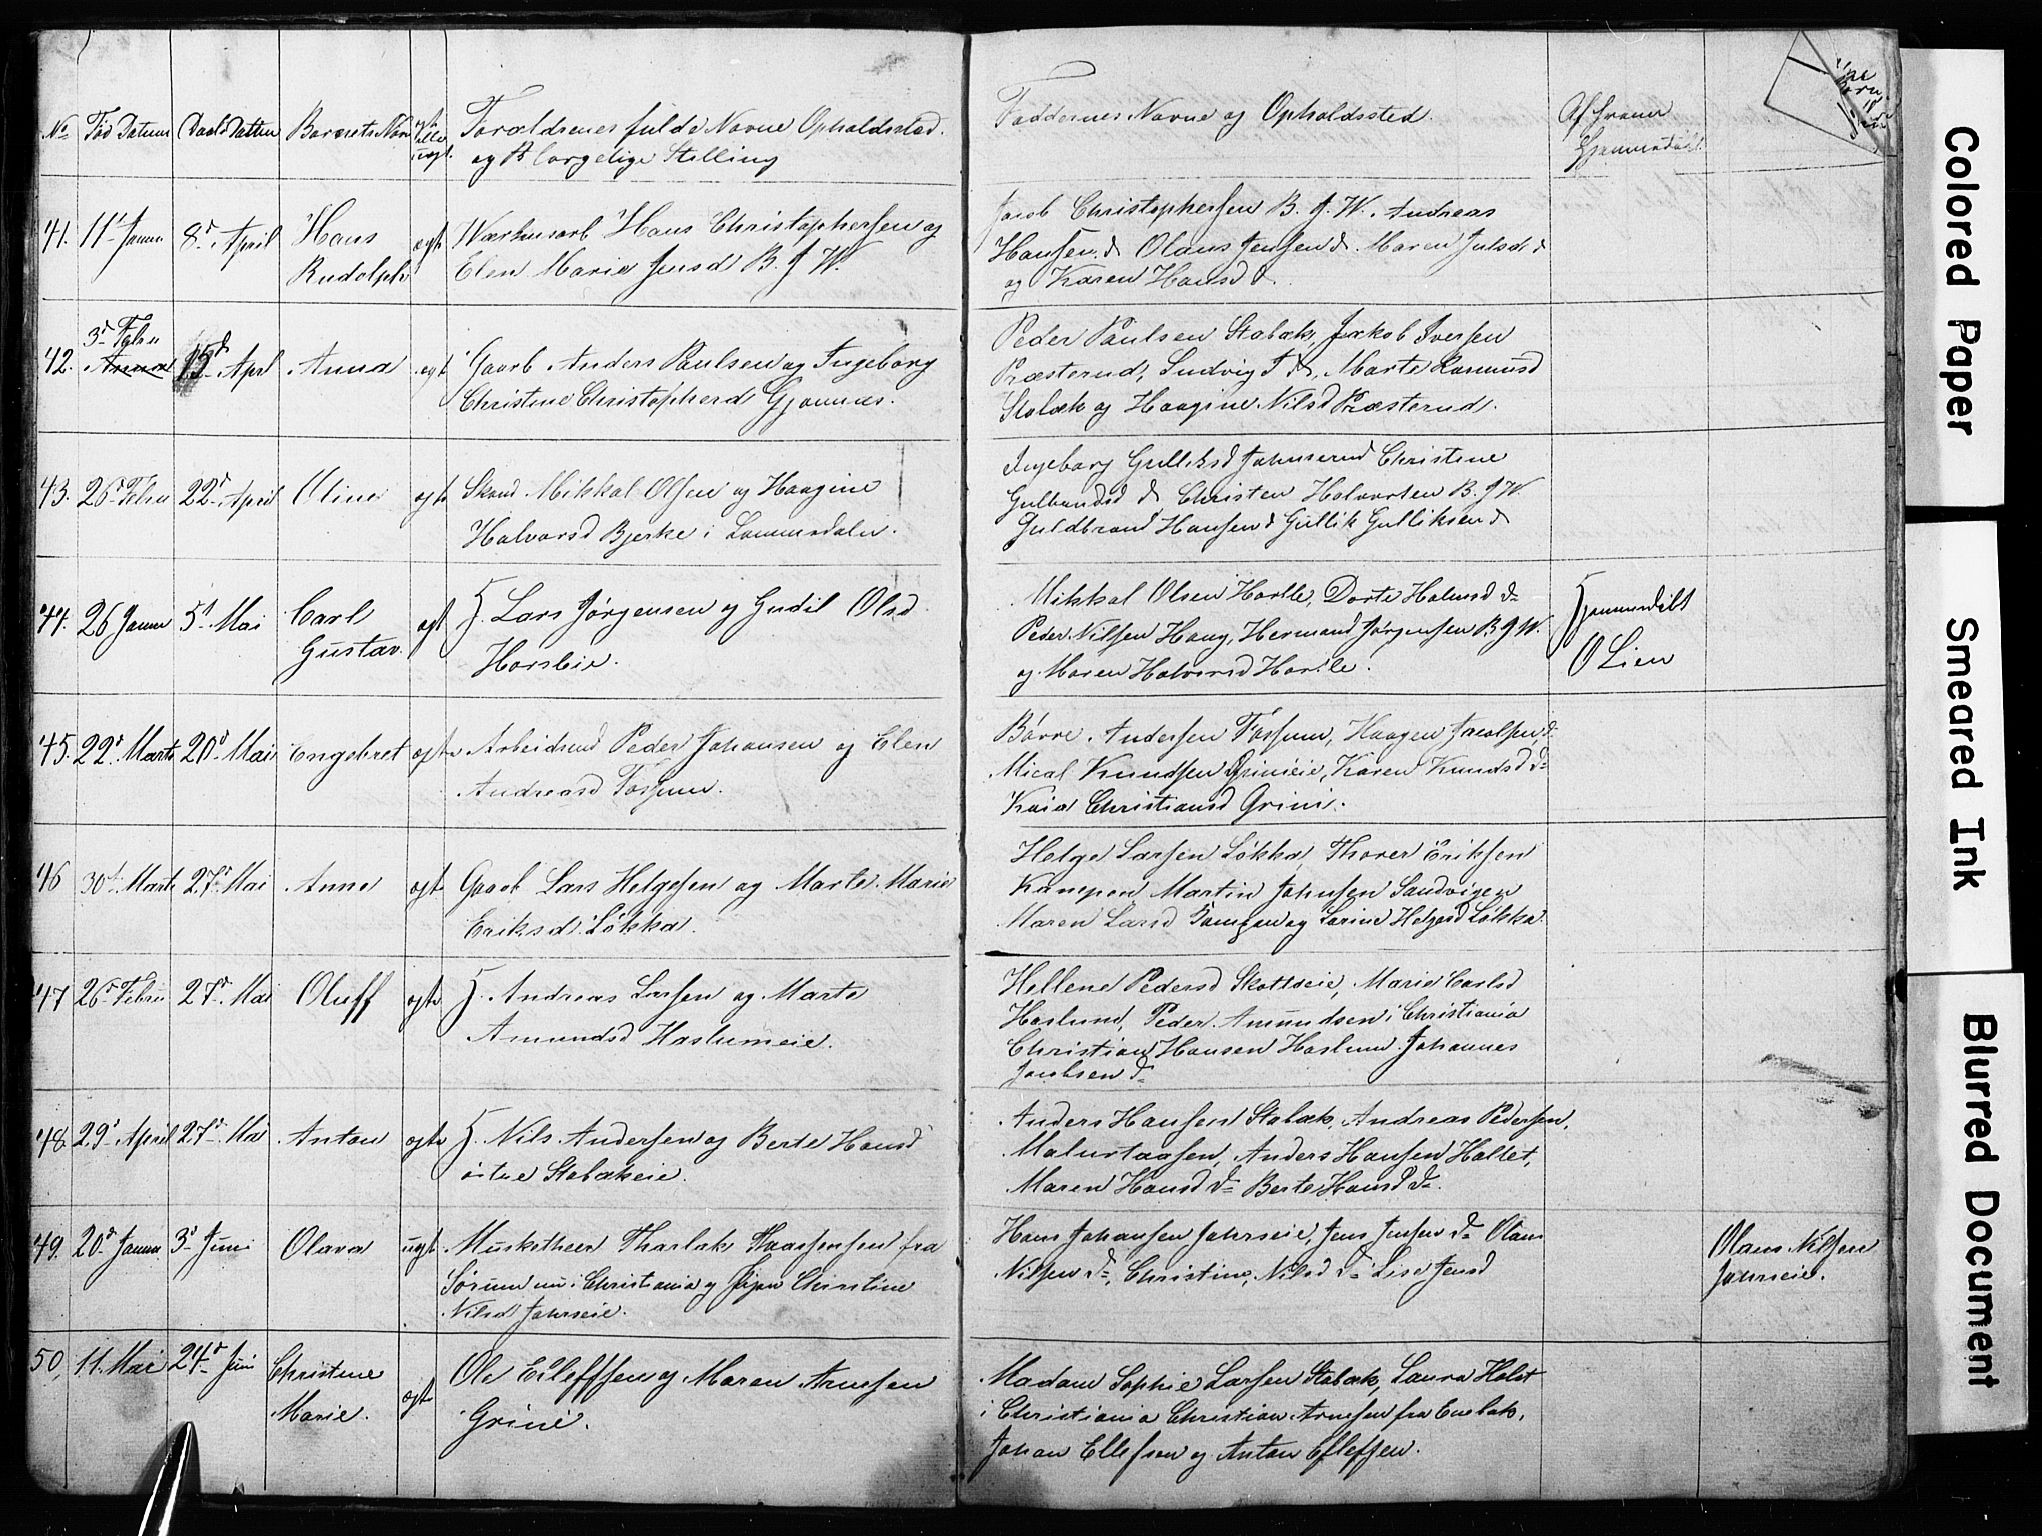 No Fød Datum Daabs Datten Barnets Navn ægt eller uægt. Forældrenes fulde Navne Opholdssted.
og Borgelige Stilling
Faddernes Navne og Opholdssted.
Af hvem
Gjemmedøbt
41. 11t Janu 8d April Hans ægt Værksarb Hans Christophersen og
Rudolph Elen Marie Jensd B. J. W.
Jacob Christophersen B. J. W. Andreas
Hansen d Olaus Jensen d. Maren Julsd d
og Karen Hansd d.
3d Febru
42. 15d Apl Anna ægt Gaarb Anders Paulsen og Ingeborg
Christine Christophersd Gjønnes.
Peder Paulsen Stabæk, Jakob Iversen
Præsterud, Ludvig I d, Marte Rasmusd
Stabæk og Haagine Nilsd Præsterud.
43. 26d Febru 22d April Oline ægt Skrud Mikkal Olsen og Haagine
Halvorsd Bjerke i Lommedalen.
Ingeborg Gulliksd Johnserud Christine
Gulbrandsd d Christen Halvorsen B. J. W.
Guldbrand Hansen d Gullik Gulliksen d
44. 26 Janu 5t Mai Carl ægt H. Lars Jørgensen og Gudil Olsd
Gustav. Horsleie.
Mikkal Olsen Horsle, Dorte Halvorsd d
Peder Nilsen Haug, Hermand Jørgensen B. J. W.
og Maren Halvorsd Horsle.
Hjemmedøbt
O Lien
45. 22d Marts 20d Mai Engebret ægte Arbeidsmd Peder Johansen og Elen
Andreasd Fossum.
Børre Andersen Fossum, Haagen Jacobsen d
Mical Knudsen Grinieie, Karen Knudsd d
Kaia Christiansd Grini.
46 30d Marts 27d Mai Anne ægte Gaarb Lars Helgesen og Marte Marie
Eriksd Løkka.
Helge Larsen Løkka, Thorer Eriksen
Kampen Martin Johnsen Sandvigen
Maren Larsd Kampen og Larine Helgesd Løkka.
47 26d Febru 27d Mai Oluff ægte H. Andreas Larsen og Marte
Amundsd Haslumeie.
Hellene Pedersd Skottseie, Marie Carlsd
Haslum, Peder Amundsen i Christiania
Christian Hansen Haslum Johannes
Jacobsen d
48 29d April 27d Mai Anton ægte H. Nils Andersen og Berte Hansd
østre Stabækeie.
Anders Hansen Stabæk, Andreas Pedersen,
Malurtaasen, Anders Hansen Hallet,
Maren Hansd d Berte Hansd d.
49. 20d Janu 3d Juni Olava uægt Musketheer Tharlak Haagensen fra
Sørum nu i Christiania og Pigen Christine
Nilsd Jahrseie.
Hans Johansen Jahrseie, Jens Jensen d Olaus
Nilsen d, Christine Nilsd d Lise Jensd
Olaus Nilsen
Jahrseie.
50, 11. Mai 24d Juni Christine ægte Ole Eileffsen og Maren Arnesen
Marie. Grini.
Madam Sophie Larsen Stabæk, Laura Holst
i Christiania Christian Arnesen fra Enebak,
Johan Ellefsen og Anton Eleffsen.
Colored Paper
Smeared Ink
Blurred Document